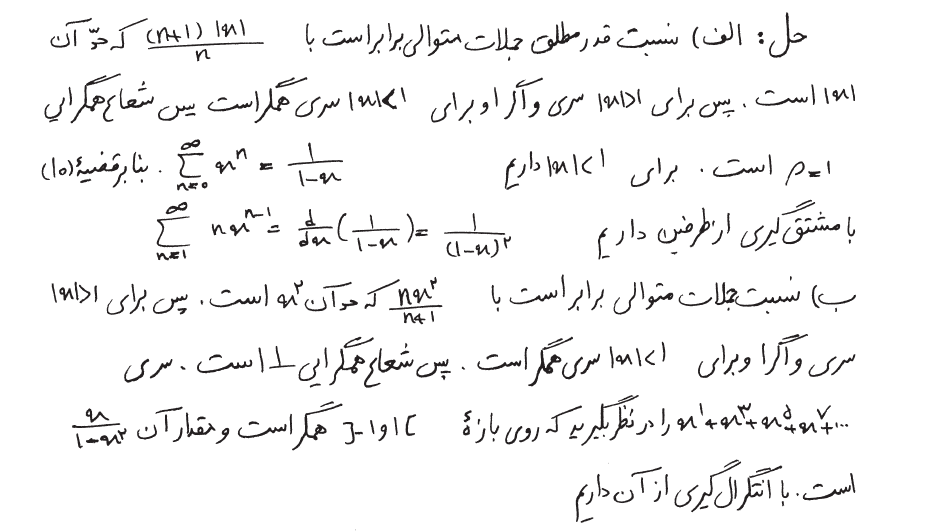 حل: الف) نسبت قدر مطلق جملات متوالی برابر است با $\frac{(n+1)|x|}{n}$ که حدّ آن
|x| است. پس برای |x|>1 سری واگرا و برای |x|<1 سری همگراست پس شعاع همگرایی
ρ=1 است. برای |x|<1 داریم $\sum_{n=0}^{\infty} x^n = \frac{1}{1-x}$. بنا بر قضیهٔ (۱۰)
با مشتق گیری از طرفین داریم $\sum_{n=1}^{\infty} nx^{n-1} = \frac{d}{dx}(\frac{1}{1-x}) = \frac{1}{(1-x)^۲}$
ب) نسبت جملات متوالی برابر است با $\frac{nx^۲}{n+1}$ که حد آن x^۲ است. پس برای |x|>1
سری واگرا و برای |x|<1 سری همگراست. پس شعاع همگرایی 1 است. سری
x^1+x^۳+x^۵+x^۷+... را در نظر بگیرید که روی بازهٔ ]-1و1[ همگراست و مقدار آن $\frac{x}{1-x^۲}$
است. با انتگرال گیری از آن داریم